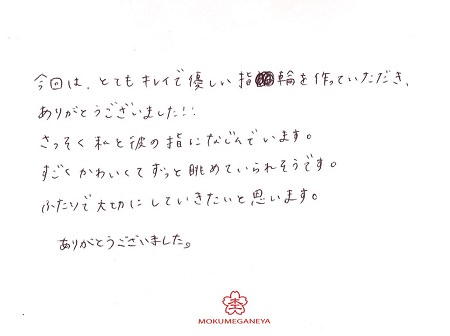 今回は、とてもキレイで優しい指輪を作っていただき、
ありがとうございました!!
さっそく私と彼の指になじんでいます。
すごくかわいくてずっと眺めていられそうです。
ふたりで大切にしていきたいと思います。
ありがとうございました。
MOKUMEGANEYA